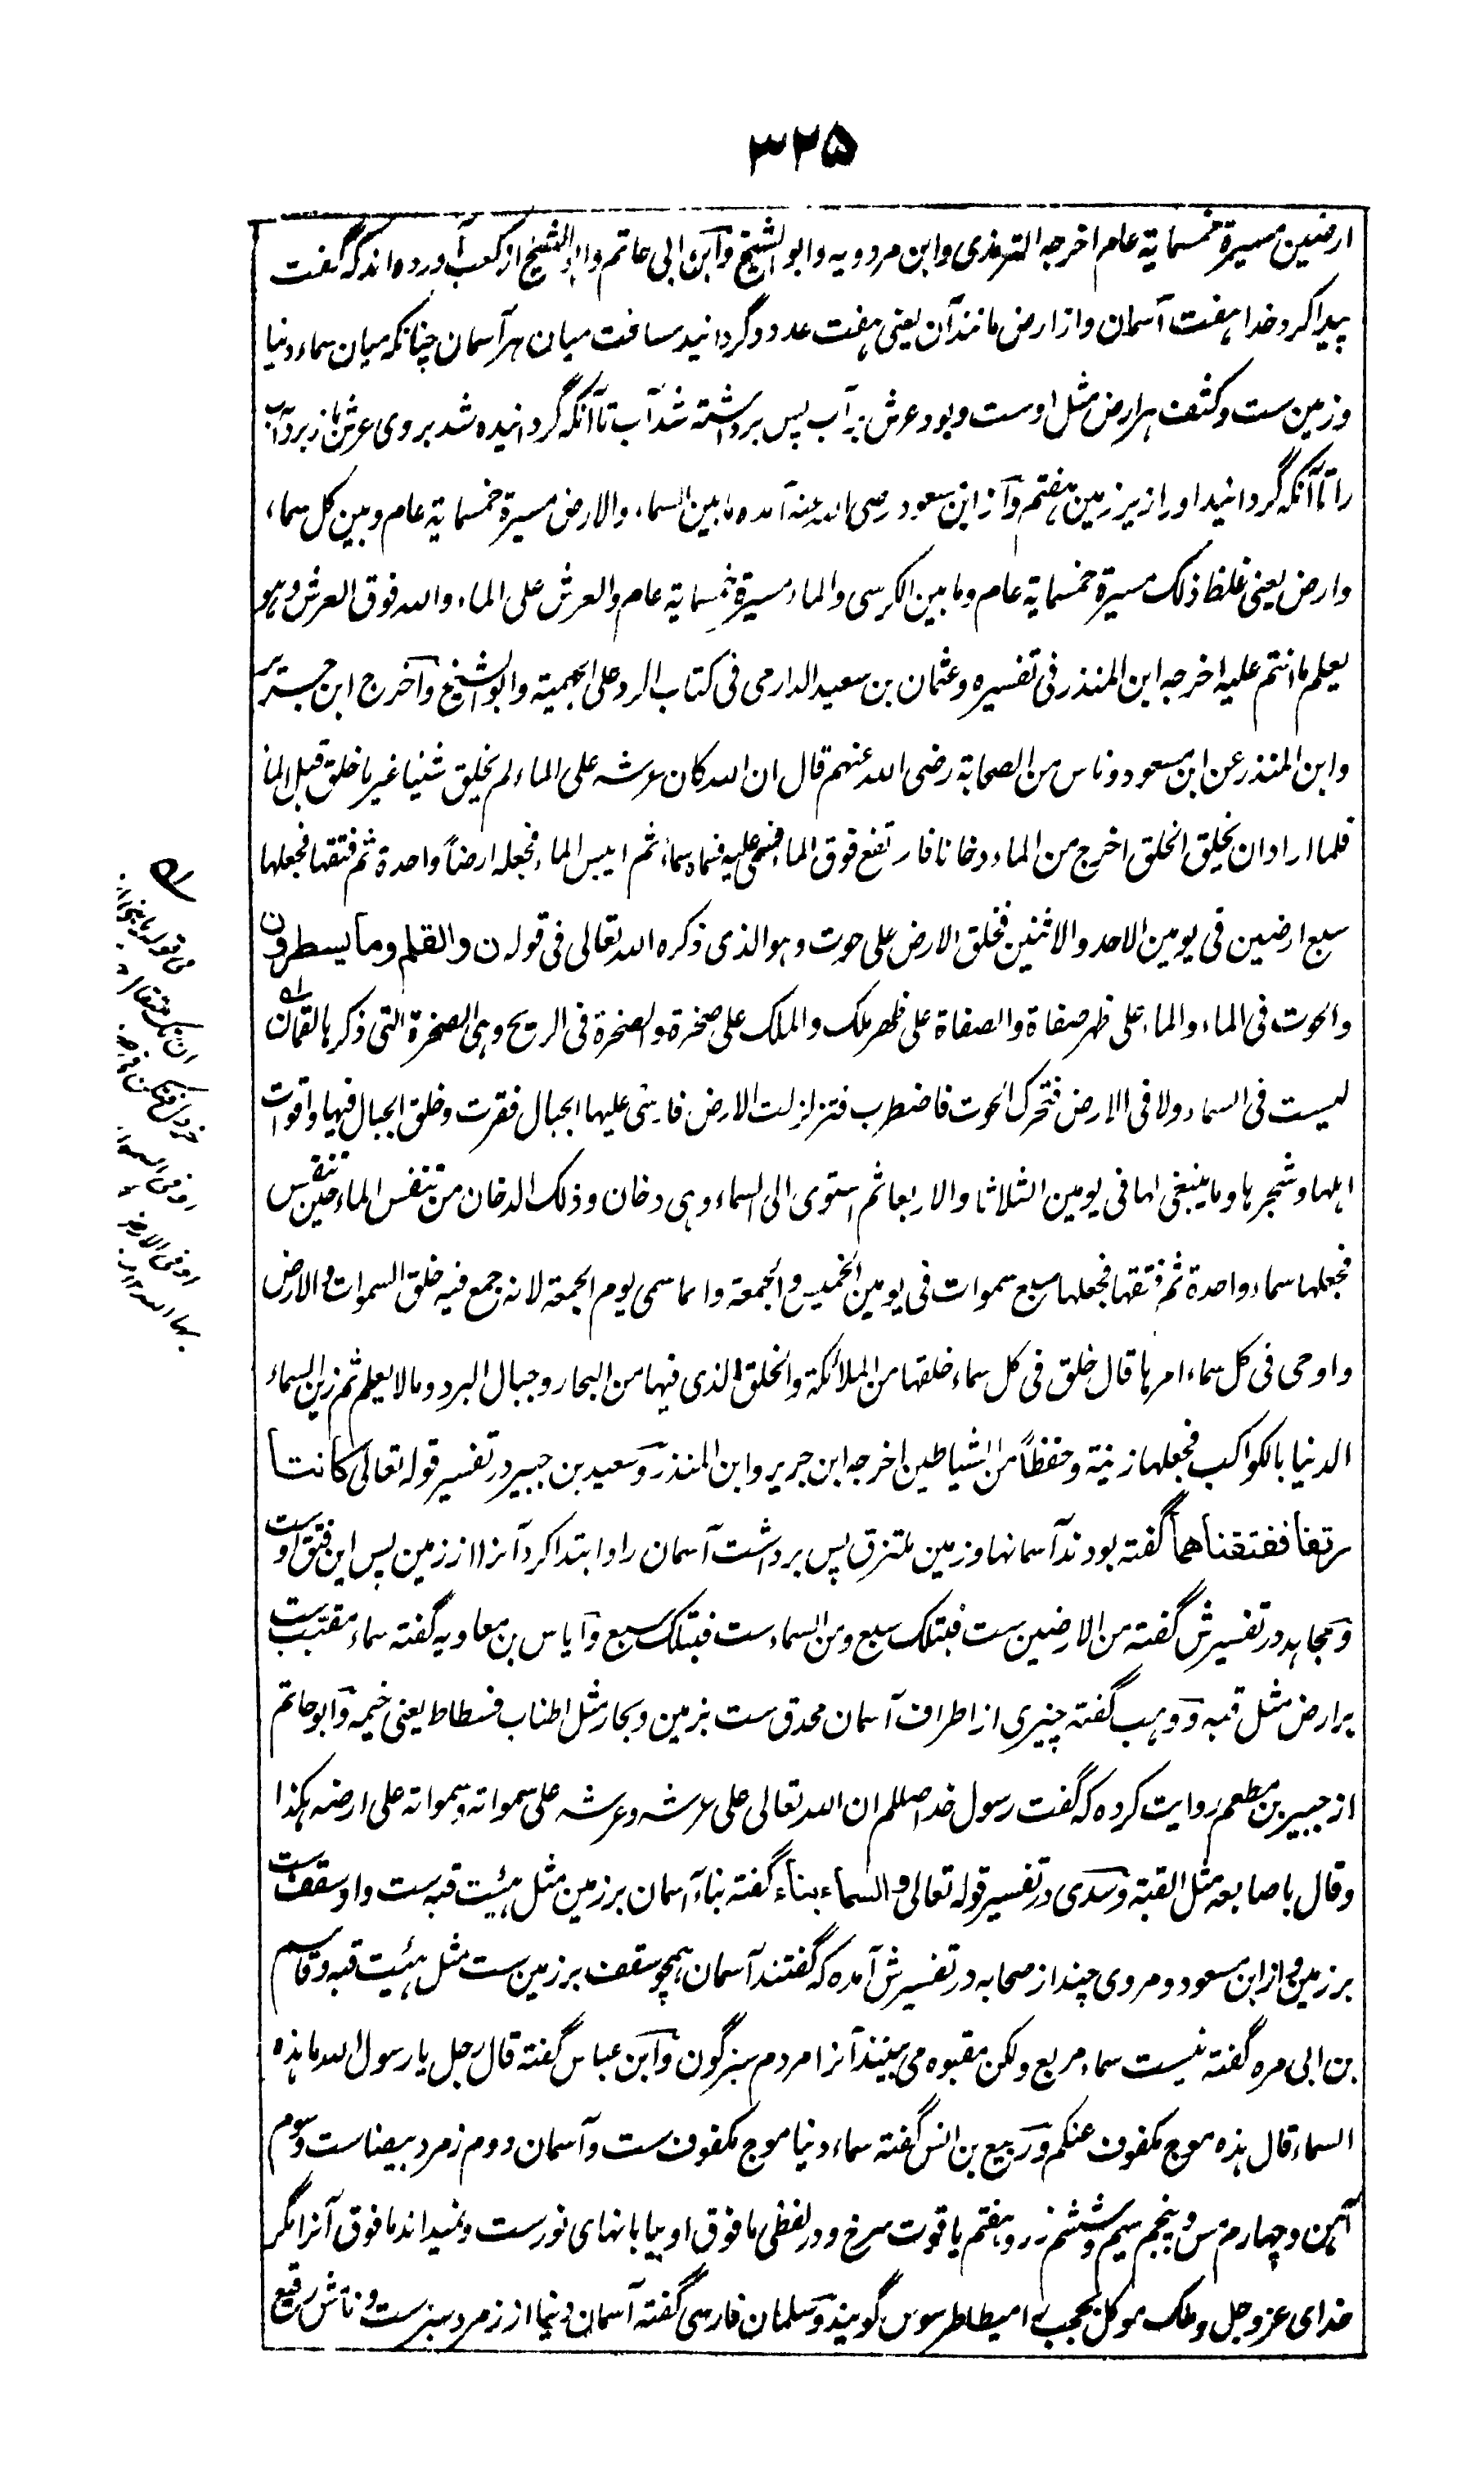 ۳۲۵
ارضین مسیرة خمسمایة عام اخرجه الترمذی وابن مردویه وابو الشیخ وابن ابی حاتم وابو الشیخ از کعب آورده اند که گفت
پیدا کرد خدا هفت آسمان و از ارض مانند آن یعنی هفت عدد و گردانید مسافت میان هر آسمان چنانکه میان سماء دنیا
و زمین ست و کثف هر ارض مثل اوست و بود عرش بر آب پس برداشته شد آب تا آنکه گردانیده شد بروی عرش باز برد آب
را تا آنکه گردانید او را زیر زمین هفتم و از ابن مسعود رضی الله عنه آمده ما بین السماء والارض مسیرة خمسمایة عام و بین کل سماء
وارض یعنی غلظ ذلک مسیرة خمسمایة عام وما بین الکرسی والماء مسیرة خمسمایة عام والعرش علی الماء والله فوق العرش وهو
یعلم ما انتم علیه اخرجه ابن المنذر فی تفسیره وعثمان بن سعید الدارمی فی کتاب الرد علی الجهمیة وابو الشیخ واخرج ابن جریر
وابن المنذر عن ابن مسعود وناس من الصحابة رضی الله عنهم قال ان الله کان عرشه علی الماء لم یخلق شیئا غیر ما خلق قبل الماء
فلما اراد ان یخلق الخلق اخرج من الماء دخانا فارتفع فوق الماء فسمی علیه فسماه سماء ثم ایبس الماء فجعله ارضاً واحدة ثم فتقها فجعلها
سبع ارضین فی یومین الاحد والاثنین فخلق الارض علی حوت وهو الذی ذکره الله تعالی فی قوله ن والقلم وما یسطرون
والحوت فی الماء والماء علی ظهر صفاة والصفاة علی ظهر ملک والملک علی صخرة والصخرة فی الریح وهی الصخرة التی ذکرها لقمان
لیست فی السماء ولا فی الارض فتحرک الحوت فاضطرب فتزلزلت الارض فارسی علیها الجبال فقرت وخلق الجبال فیها واقوات
اهلها وشجرها وما ینبغی لها فی یومین الثلاثا والاربعا ثم استوی الی السماء وهی دخان وذلک الدخان من تنفس الماء حین تنفس
فجعلها سماء واحدة ثم فتقها فجعلها سبع سموات فی یومین الخمیس والجمعة وانما سمی یوم الجمعة لانه جمع فیه خلق السموات والارض
واوحی فی کل سماء امرها قال خلق فی کل سماء خلقها من الملائکة والخلق الذی فیها من البحار وجبال البرد وما لا یعلم ثم زین السماء
الدنیا بالکواکب فجعلها زینة وحفظاً من الشیاطین اخرجه ابن جریر وابن المنذر وسعید بن جبیر در تفسیر قوله تعالی کانتا
رتقا ففتقناهما گفته بودند آسمانها و زمین ملتزق پس برداشت آسمان را و ابتدا کرد آنرا از زمین پس این فتق اوست
و مجاهد در تفسیرش گفته من الارضین ست فبتلک سبع ومن السماء ست فبتلک سبع و ایاس بن معاویه گفته سماء مقبب ست
بر ارض مثل قبه و وهب گفته چیزی از اطراف آسمان محدق ست بزمین و بحار مثل اطناب فسطاط یعنی خیمه و ابو حاتم
از جبیر بن مطعم روایت کرده که گفت رسول خدا صللم ان الله تعالی علی عرشه وعرشه علی سمواته وسمواته علی ارضه هکذا
وقال باصابعه مثل القبة و سدی در تفسیر قوله تعالی والسماء بناء گفته بناء آسمان بر زمین مثل هیئت قبه ست و او سقف ست
بر زمین و از ابن مسعود و مروی چند از صحابه در تفسیرش آمده که گفتند آسمان همچو سقف بر زمین ست مثل هیئت قبه و قاسم
بن ابی مره گفته نیست سماء مربع ولکن مقبوه می بینند آنرا مردم سبز گون و ابن عباس گفته قال رجل یا رسول الله ما هذه
السماء قال هذه موج مکفوف عنکم و ربیع بن انس گفته سماء دنیا موج مکفوف ست و آسمان دوم زمرد بیضاست و سوم
آهن و چهارم مس و پنجم سیم و ششم زر و هفتم یاقوت سرخ و در لفظی ما فوق او بیابانهای نورست و نمیداند ما فوق آنرا مگر
خدای عز وجل و ملک موکل بحجب را میطاطروس گویند و سلمان فارسی گفته آسمان دنیا از زمرد سبزست و نامش رقیع
فی قوله یا بنی
ان تک مثقال
خردل فتکن فی
او فی السموات
او فی الارض
بها الله ۱۲